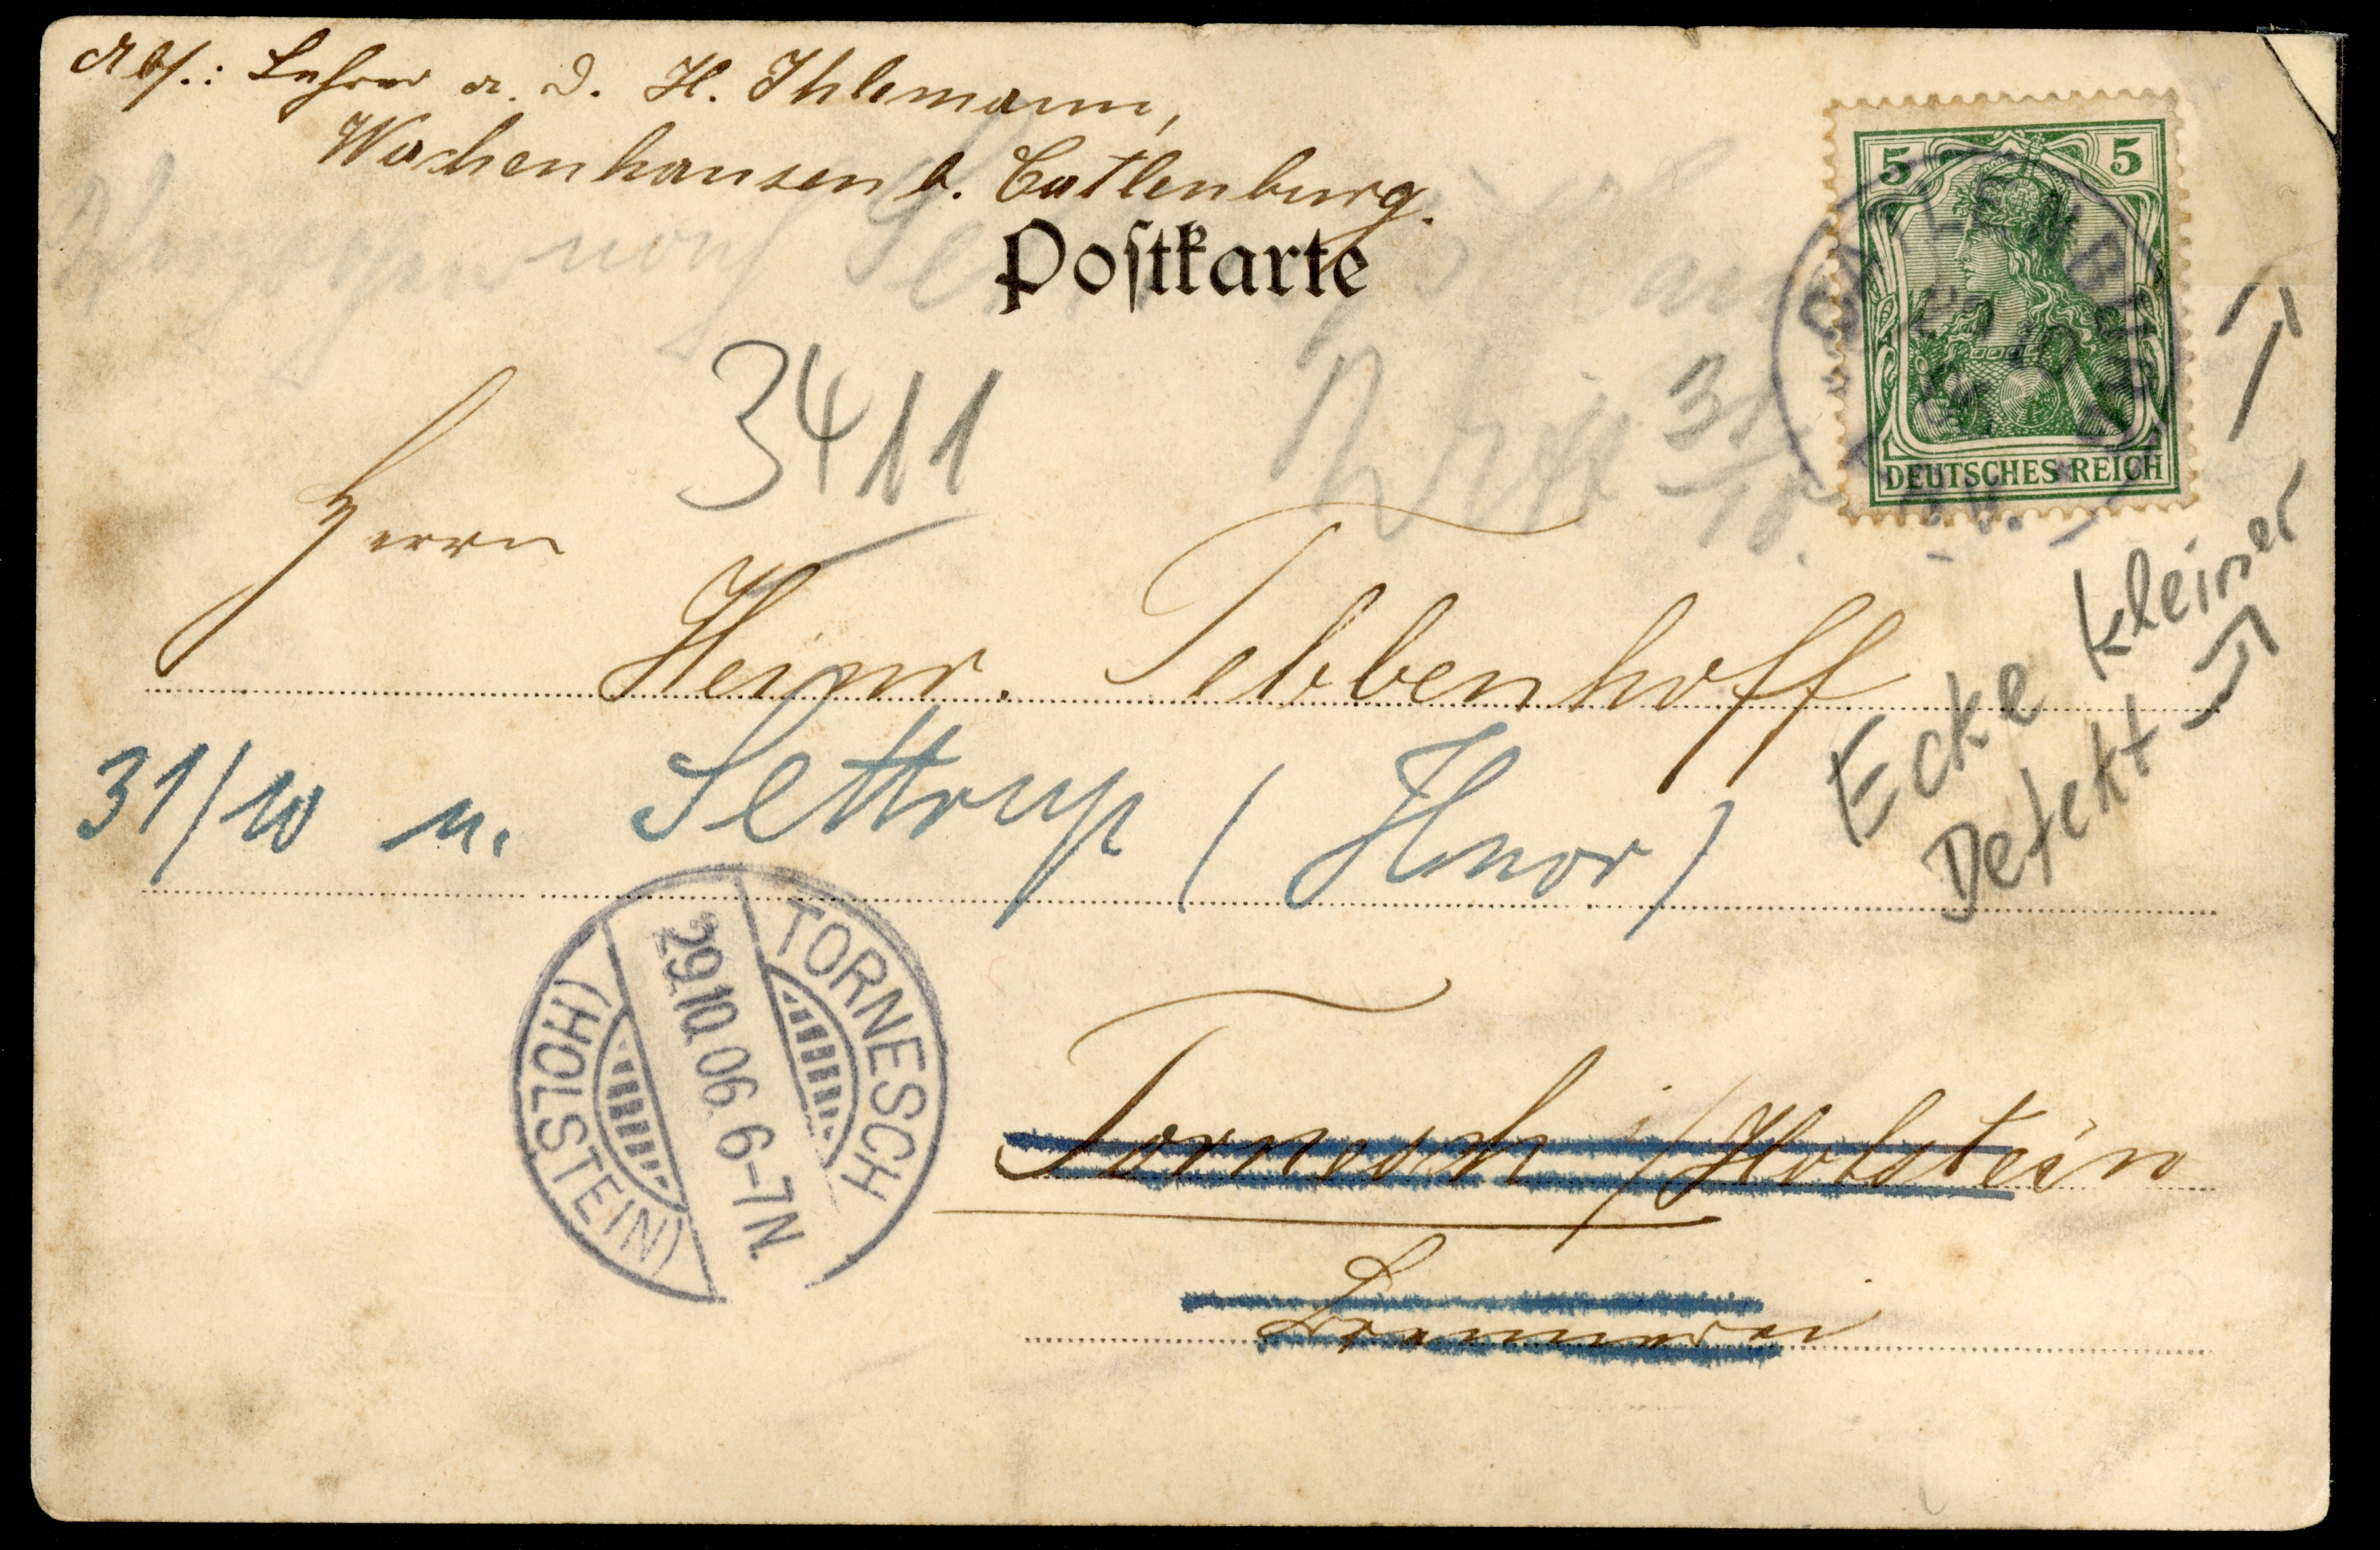 Abs.: Lehrer a. D. H. Ihlemann,
Wachenhausen b. Catlenburg.
Postkarte
5 5
DEUTSCHES REICH
CATLENBURG
3411
31/10.
Herrn
Heinr. Tebbenhoff
31/10 n. Settrup (Hnov)
Ecke kleiner
Defekt
TORNESCH
29.10.06. 6-7N.
(HOLSTEIN)
Tornesch i/Holstein
Brennerei